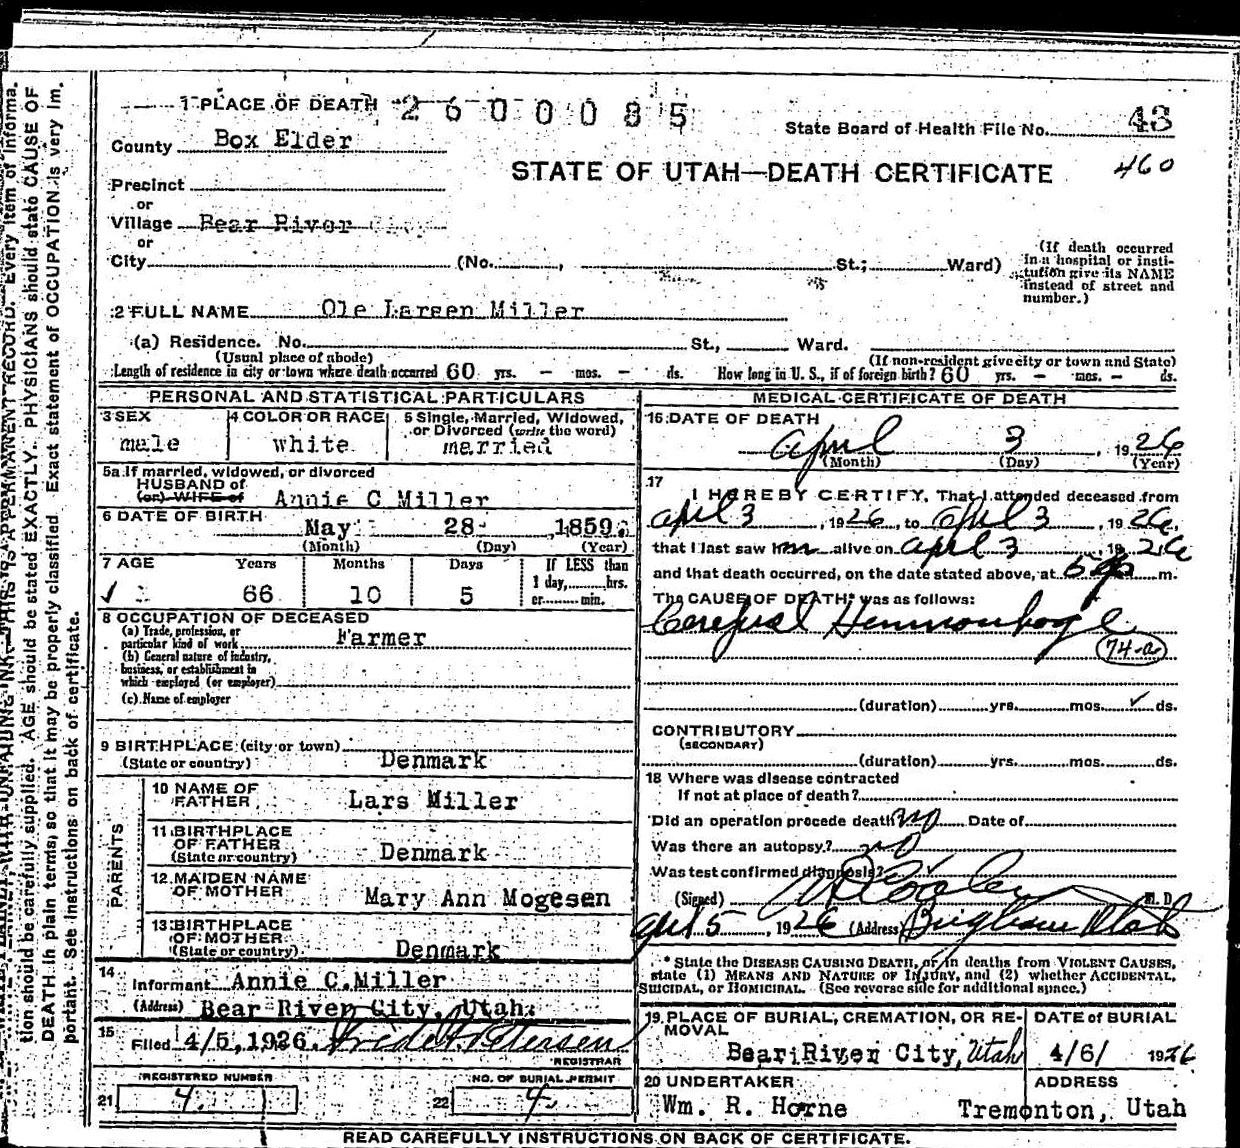 1 PLACE OF DEATH 2600085
State Board of Health File No. 43
County Box Elder
STATE OF UTAH—DEATH CERTIFICATE 460
Precinct
or
Village Bear River City
or
City (No. , St.; Ward)
(If death occurred in a hospital or insti-tution give its NAME instead of street and number.)
2 FULL NAME Ole Larsen Miller
(a) Residence. No. St., Ward.
(Usual place of abode) (If non-resident give city or town and State)
Length of residence in city or town where death occurred 60 yrs. - mos. - ds. How long in U. S., if of foreign birth? 60 yrs. - mos. - ds.
PERSONAL AND STATISTICAL PARTICULARS
3 SEX 4 COLOR OR RACE 5 Single, Married, Widowed,
or Divorced (write the word)
male white married
5a If married, widowed, or divorced
HUSBAND of
(or) WIFE of Annie C Miller
6 DATE OF BIRTH May 28 , 1859.
(Month) (Day) (Year)
7 AGE Years Months Days If LESS than
1 day, hrs.
66 10 5 or min.
8 OCCUPATION OF DECEASED
(a) Trade, profession, or
particular kind of work Farmer
(b) General nature of industry,
business, or establishment in
which employed (or employer)
(c) Name of employer
9 BIRTHPLACE (city or town)
(State or country) Denmark
PARENTS
10 NAME OF
FATHER Lars Miller
11 BIRTHPLACE
OF FATHER
(State or country) Denmark
12 MAIDEN NAME
OF MOTHER Mary Ann Mogesen
13 BIRTHPLACE
OF MOTHER
(State or country) Denmark
14
Informant Annie C.Miller
(Address) Bear River City, Utah.
15
Filed 4/5, 1926. Fride A. Petersen
REGISTRAR
REGISTERED NUMBER NO. OF BURIAL PERMIT
21 4. 22 4.
MEDICAL CERTIFICATE OF DEATH
16 DATE OF DEATH
April 3 , 1926
(Month) (Day) (Year)
17
I HEREBY CERTIFY, That I attended deceased from
April 3 , 1926, to April 3 , 1926,
that I last saw him alive on April 3 , 1926
and that death occurred, on the date stated above, at m.
The CAUSE OF DEATH* was as follows:
Cerebral Hemmorhage
74-a
(duration) yrs. mos. ✓ ds.
CONTRIBUTORY
(SECONDARY)
(duration) yrs. mos. ds.
18 Where was disease contracted
If not at place of death?
Did an operation precede death no Date of
Was there an autopsy? no
Was test confirmed diagnosis?
(Signed) M. D.
April 5 , 1926 (Address) Brigham Utah
* State the DISEASE CAUSING DEATH, or in deaths from VIOLENT CAUSES,
state (1) MEANS AND NATURE OF INJURY, and (2) whether ACCIDENTAL,
SUICIDAL, or HOMICIDAL. (See reverse side for additional space.)
19 PLACE OF BURIAL, CREMATION, OR RE-
MOVAL DATE of BURIAL
Bear River City, Utah 4/6/ 1926
20 UNDERTAKER ADDRESS
Wm. R. Horne Tremonton, Utah
READ CAREFULLY INSTRUCTIONS ON BACK OF CERTIFICATE.
tion should be carefully supplied. AGE should be stated EXACTLY. PHYSICIANS should state CAUSE OF
DEATH in plain terms, so that it may be properly classified. Exact statement of OCCUPATION is very im-
portant. See instructions on back of certificate.